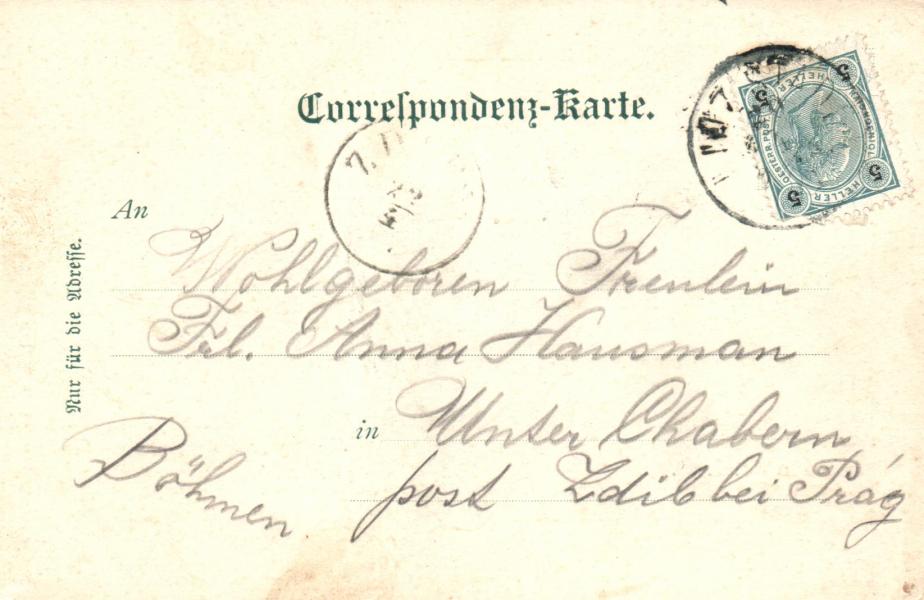 Correspondenz-Karte.
5 5
HELLER HELLER
5 5
An
Nur für die Adresse.
Wohlgeboren Freulein
Frl. Anna Hausman
in Unter Chabern
post Zdib bei Prág
Böhmen